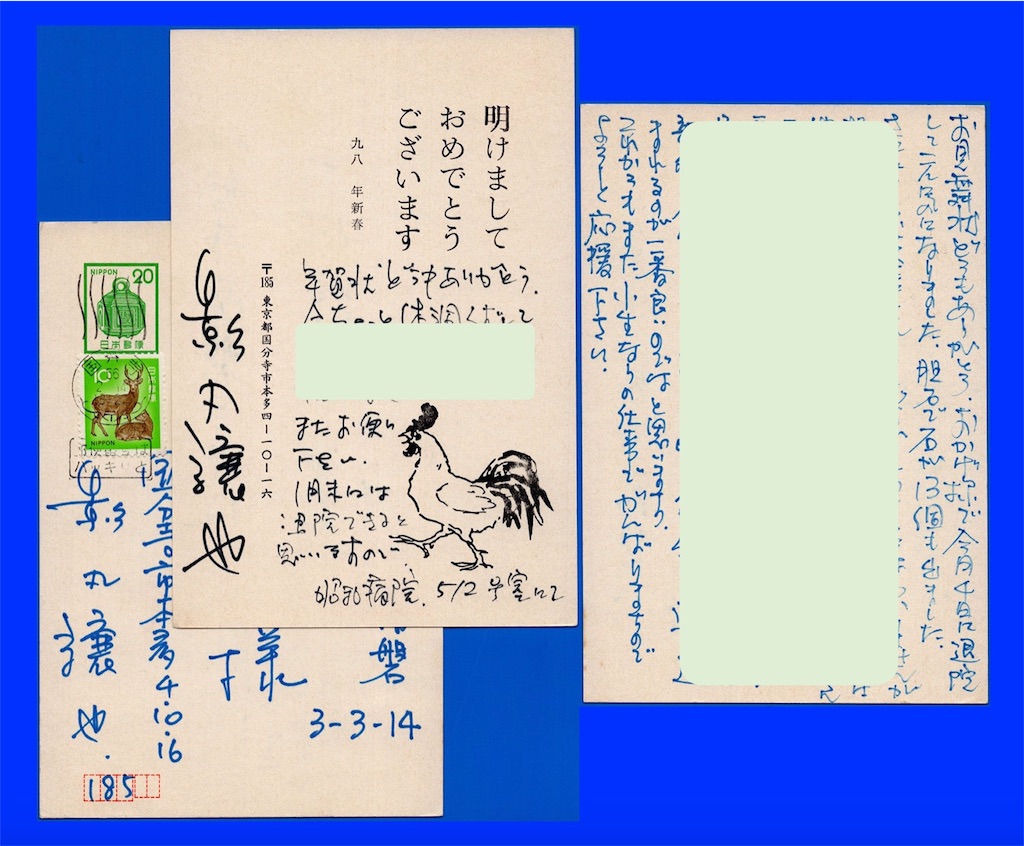 明けまして
おめでとう
ございます
九八 年新春
〒185 東京都国分寺市本多四ー一〇ー一六
影丸譲也
年賀状どうもありがとう。
今ちょっと体調くずして
またお便り
下さい。
1月末には
退院できると
思いますので。
昭和病院、512号室にて
NIPPON 20
日本郵便
10
NIPPON
磐
3-3-14
様
国分寺市本多4.10.16
影丸譲也.
185
お見舞状どうもありがとう。おかげ様で今月4日に退院
して元気になりました。胆石で石が13個も出ました。
まれるのが一番良いのではと思いますヨ。
これからもまた小生なりの仕事でがんばりますので
よろしく応援下さい。